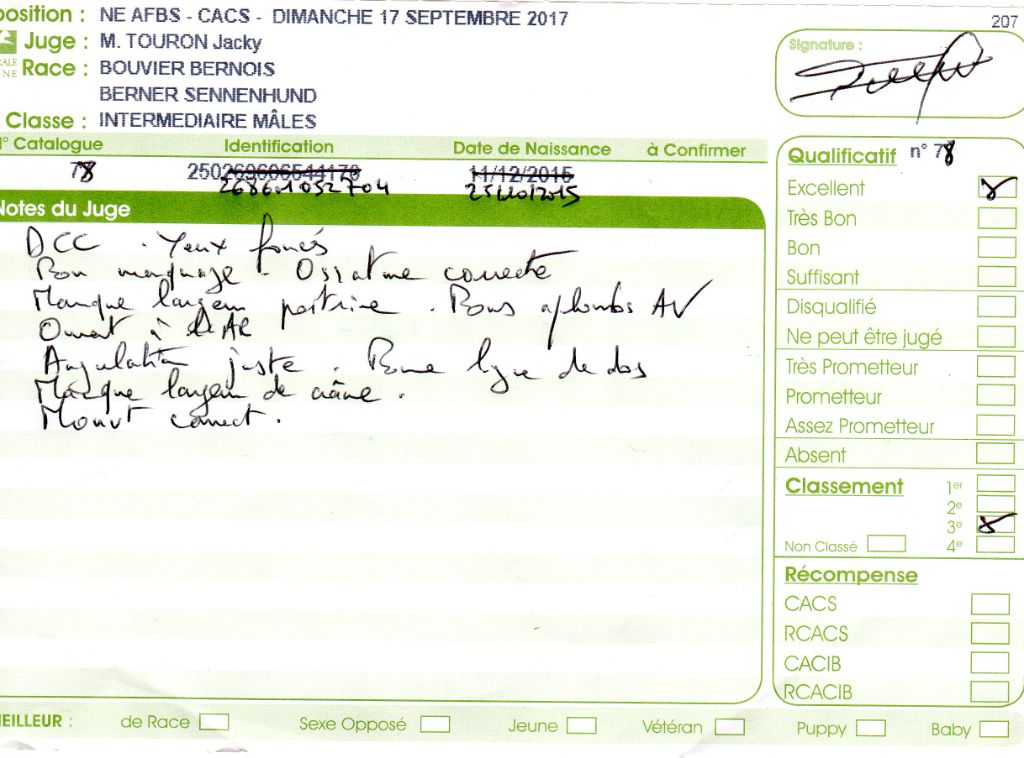 position : NE AFBS - CACS - DIMANCHE 17 SEPTEMBRE 2017
207
Juge : M. TOURON Jacky
Signature :
Race : BOUVIER BERNOIS
BERNER SENNENHUND
Classe : INTERMEDIAIRE MÂLES
N° Catalogue Identification Date de Naissance à Confirmer
78 250269606544178 11/12/2015
268601052704 25/10/2015
Notes du Juge
DCC . Yeux foncés
Bon marquage - Ossature correcte
Manque largeur poitrine . Bons aplombs AV
Ouvert à l'AR
Angulation juste . Bonne ligne de dos
Manque largeur de crâne .
Mouvt correct .
Qualificatif n° 78
Excellent
Très Bon
Bon
Suffisant
Disqualifié
Ne peut être jugé
Très Prometteur
Prometteur
Assez Prometteur
Absent
Classement 1er
2e
3e
Non Classé 4e
Récompense
CACS
RCACS
CACIB
RCACIB
MEILLEUR : de Race Sexe Opposé Jeune Vétéran Puppy Baby